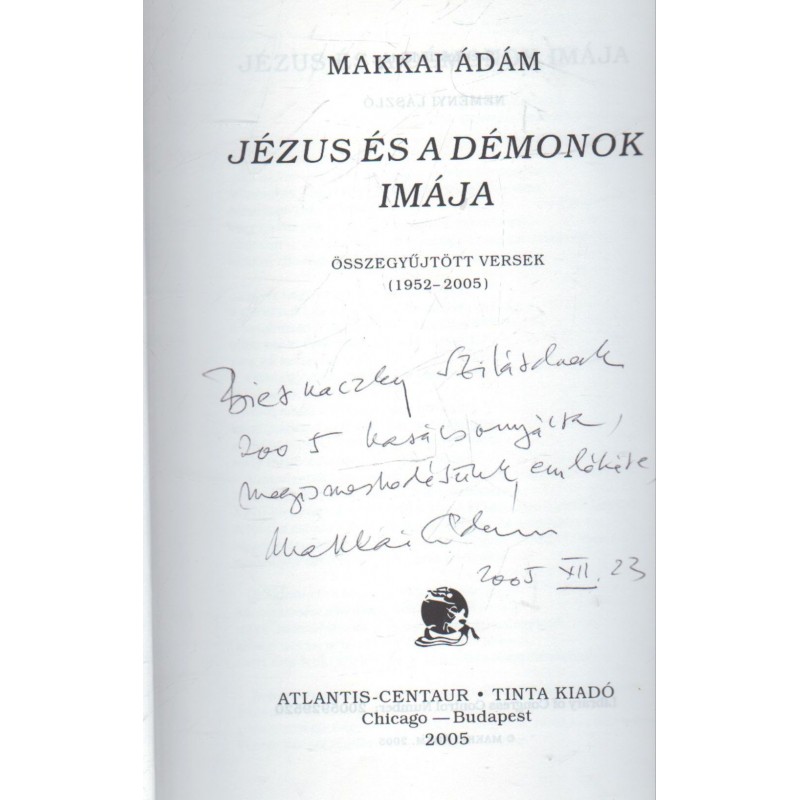 MAKKAI ÁDÁM
JÉZUS ÉS A DÉMONOK
IMÁJA
ÖSSZEGYŰJTÖTT VERSEK
(1952–2005)
Szilárdnak
2005 karácsonyára,
megismerkedésünk emlékére,
Makkai Ádám
2005 XII. 23
ATLANTIS-CENTAUR • TINTA KIADÓ
Chicago — Budapest
2005